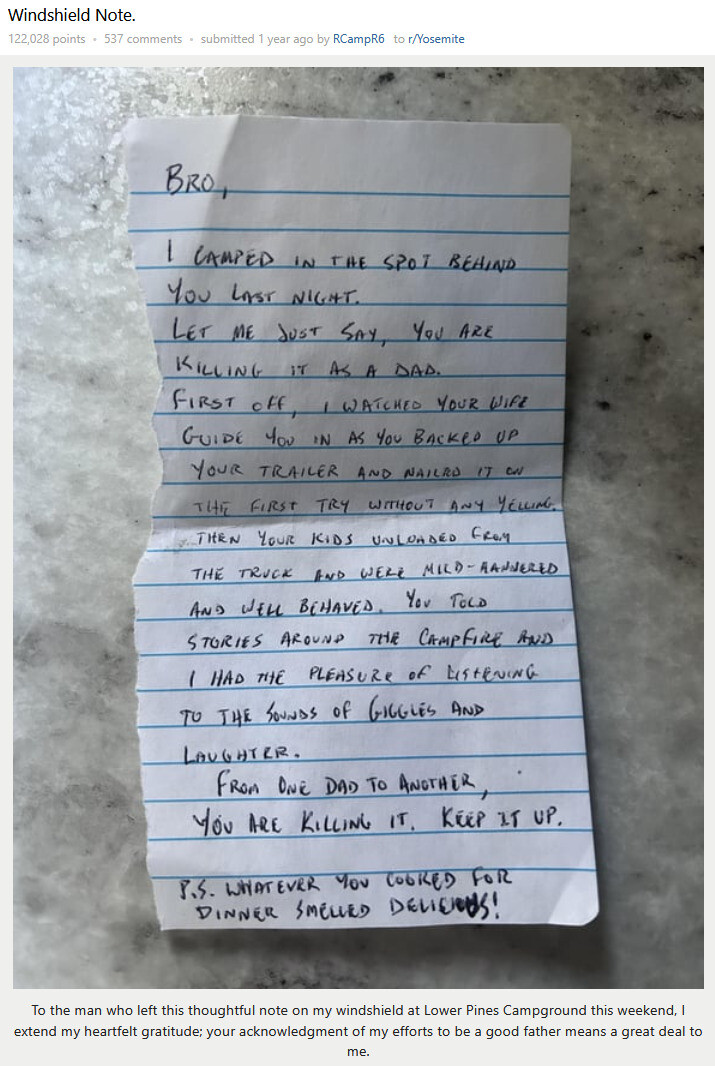 Windshield Note.
122,028 points • 537 comments • submitted 1 year ago by RCampR6 to r/Yosemite
BRO,
I CAMPED IN THE SPOT BEHIND
YOU LAST NIGHT.
LET ME JUST SAY, YOU ARE
KILLING IT AS A DAD.
FIRST OFF, I WATCHED YOUR WIFE
GUIDE YOU IN AS YOU BACKED UP
YOUR TRAILER AND NAILED IT ON
THE FIRST TRY WITHOUT ANY YELLING.
THEN YOUR KIDS UNLOADED FROM
THE TRUCK AND WERE MILD-MANNERED
AND WELL BEHAVED. YOU TOLD
STORIES AROUND THE CAMPFIRE AND
I HAD THE PLEASURE OF LISTENING
TO THE SOUNDS OF GIGGLES AND
LAUGHTER.
FROM ONE DAD TO ANOTHER,
YOU ARE KILLING IT. KEEP IT UP.
P.S. WHATEVER YOU COOKED FOR
DINNER SMELLED DELICIOUS!
To the man who left this thoughtful note on my windshield at Lower Pines Campground this weekend, I
extend my heartfelt gratitude; your acknowledgment of my efforts to be a good father means a great deal to
me.